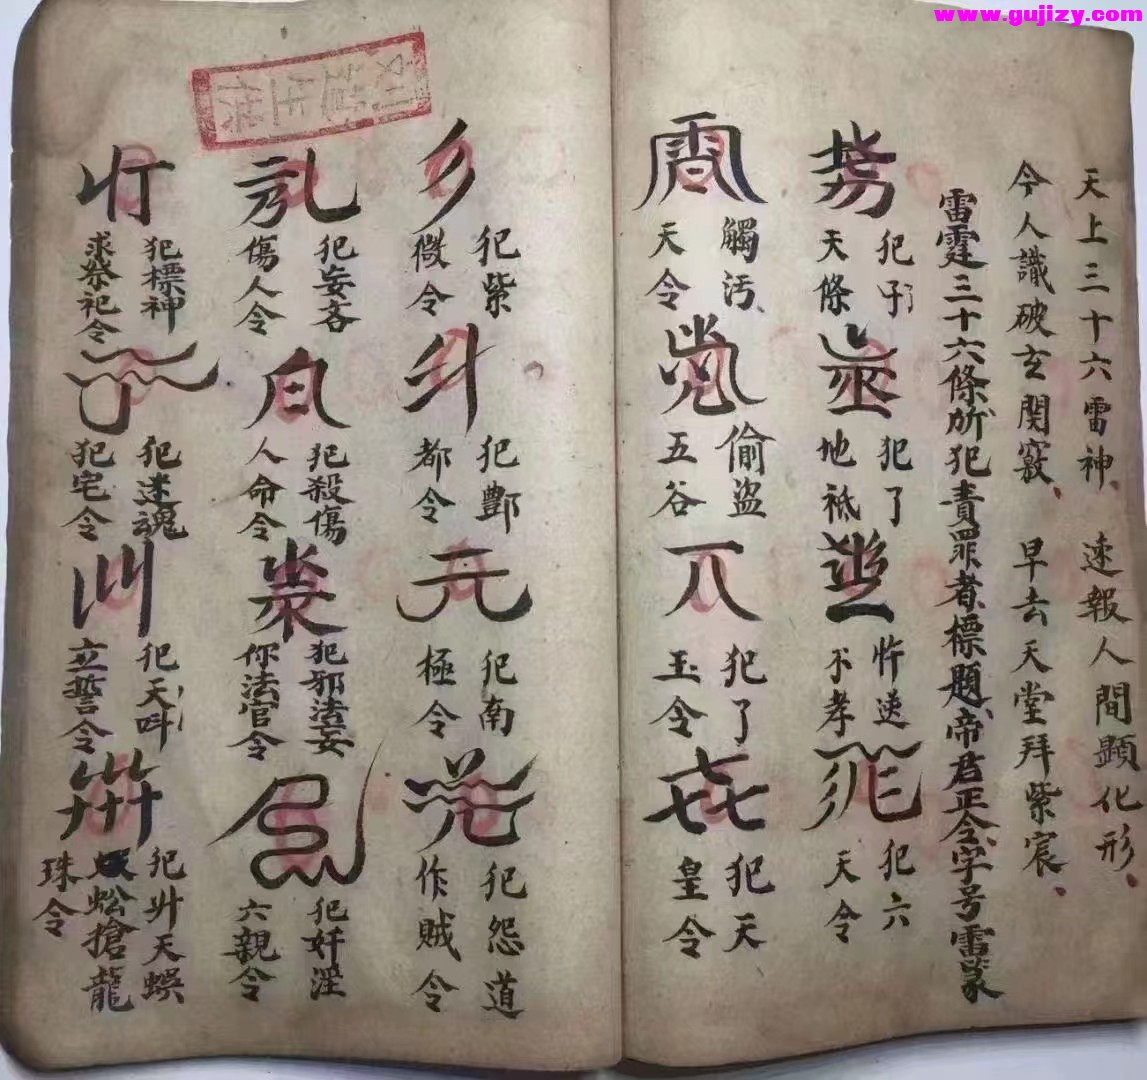 www.gujizy.com
天上三十六雷神、速報人間顕化形、
今人識破玄関竅、早去天堂拜紫宸、
雷霆三十六條所犯責罪者標題帝君正令字号雷篆
犯了
地祇
忤逆
不孝
犯六
天令
觸污
天令
偷盜
五谷
犯了
玉令
犯天
皇令
犯紫
微令
犯酆
都令
犯南
極令
犯怨道
作賊令
犯妄吝
傷人令
犯殺傷
人命令
犯邪法妄
你法官令
犯奸淫
六親令
犯標神
求祭祀令
犯迷魂
犯宅令
犯天呌
立誓令
犯升天蜈
蚣搶龍
珠令